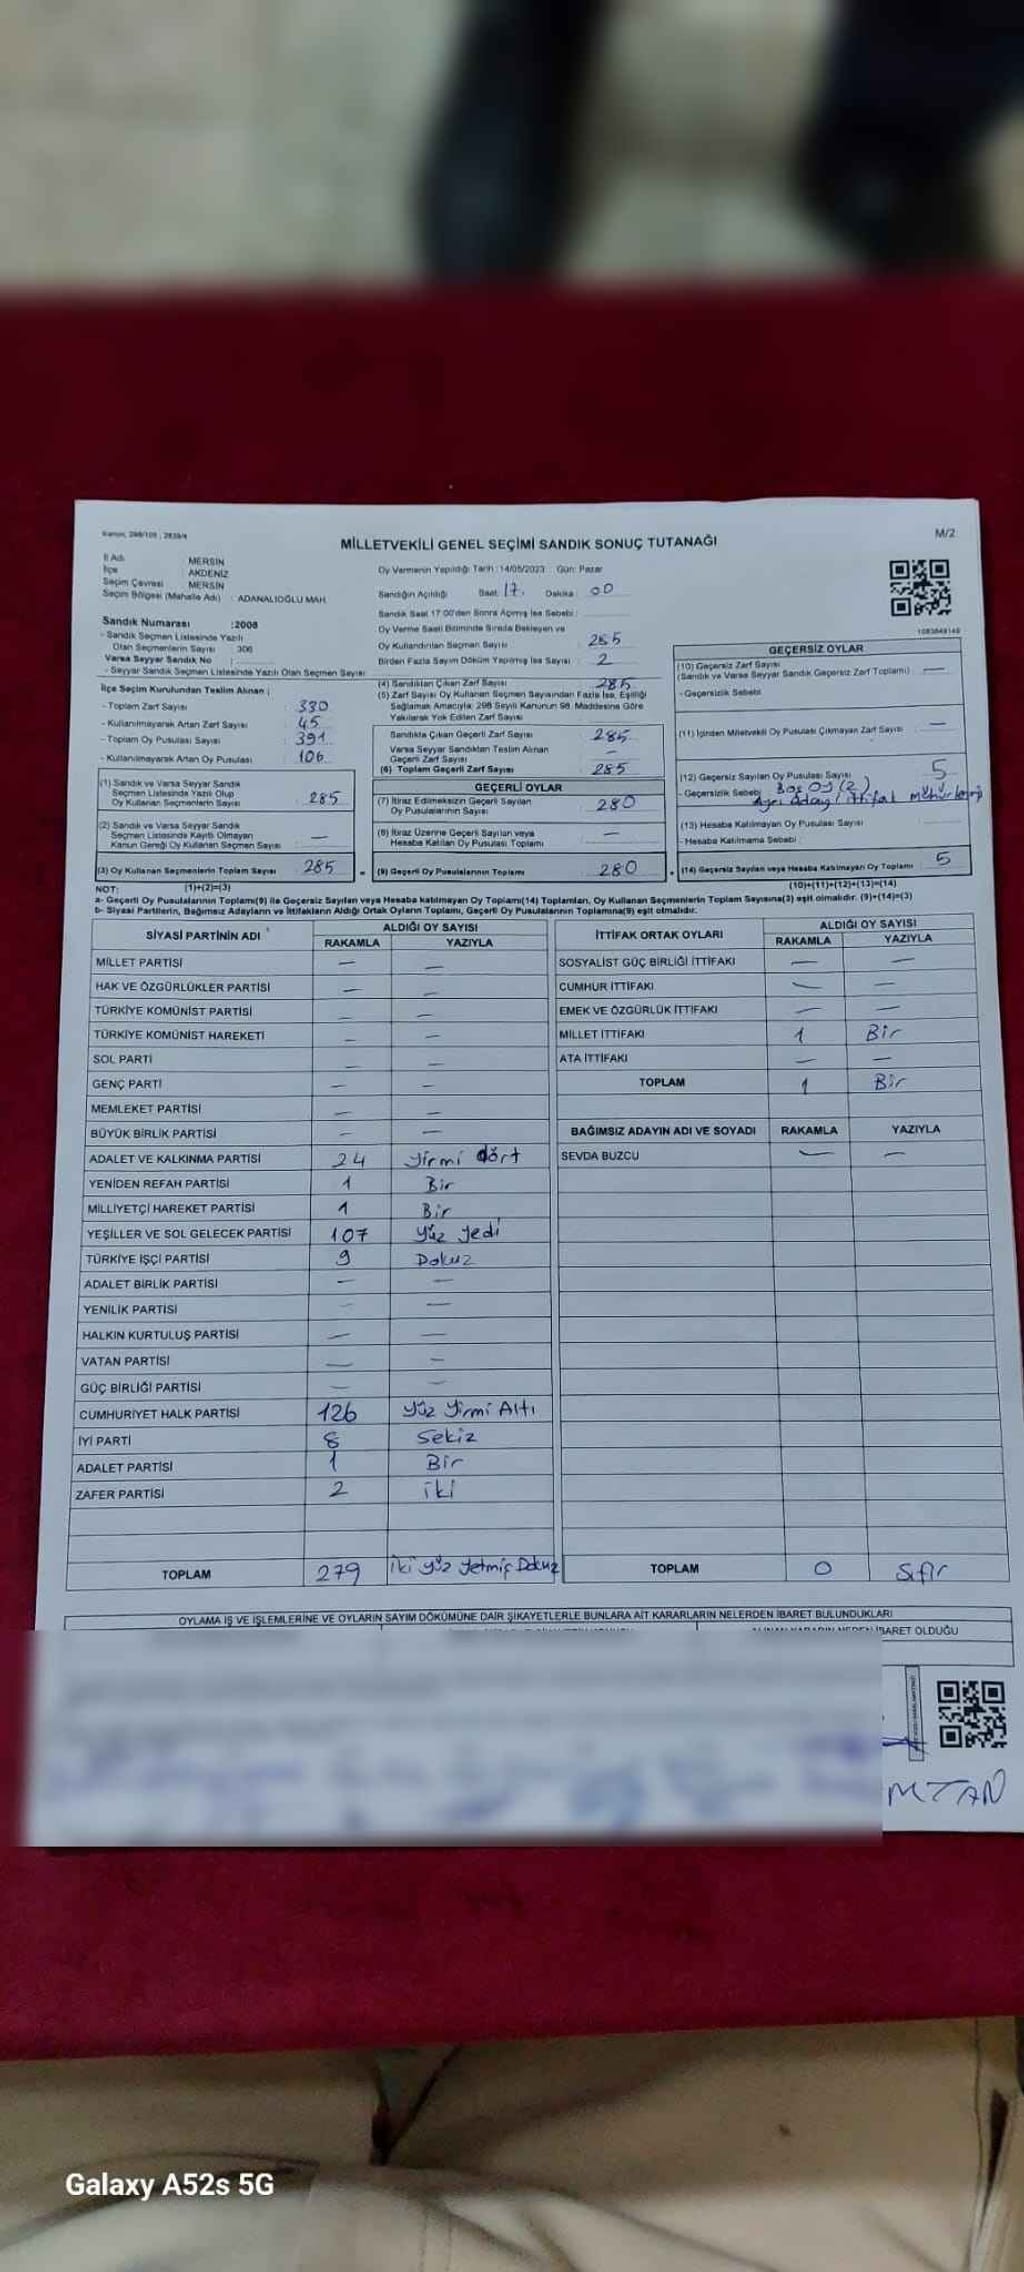 Kanun, 298/105 ; 2839/4
M/2
MİLLETVEKİLİ GENEL SEÇİMİ SANDIK SONUÇ TUTANAĞI
İl Adı MERSİN
İlçe AKDENİZ
Seçim Çevresi MERSİN
Seçim Bölgesi (Mahalle Adı) : ADANALIOĞLU MAH.
Sandık Numarası :2008
- Sandık Seçmen Listesinde Yazılı
Olan Seçmenlerin Sayısı 306
Varsa Seyyar Sandık No :
- Seyyar Sandık Seçmen Listesinde Yazılı Olan Seçmen Sayısı
İlçe Seçim Kurulundan Teslim Alınan ;
- Toplam Zarf Sayısı : 330
- Kullanılmayarak Artan Zarf Sayısı : 45
- Toplam Oy Pusulası Sayısı : 391
- Kullanılmayarak Artan Oy Pusulası : 106
(1) Sandık ve Varsa Seyyar Sandık
Seçmen Listesinde Yazılı Olup
Oy Kullanan Seçmenlerin Sayısı : 285
(2) Sandık ve Varsa Seyyar Sandık
Seçmen Listesinde Kayıtlı Olmayan
Kanun Gereği Oy Kullanan Seçmen Sayısı : —
(3) Oy Kullanan Seçmenlerin Toplam Sayısı : 285
(1)+(2)=(3)
Oy Vermenin Yapıldığı Tarih :14/05/2023 Gün: Pazar
Sandığın Açıldığı Saat: 17. Dakika : 00
Sandık Saat 17:00'den Sonra Açılmış İse Sebebi :
Oy Verme Saati Bitiminde Sırada Bekleyen ve
Oy Kullandırılan Seçmen Sayısı : 285
Birden Fazla Sayım Döküm Yapılmış İse Sayısı : 2
(4) Sandıktan Çıkan Zarf Sayısı : 285
(5) Zarf Sayısı Oy Kullanan Seçmen Sayısından Fazla İse, Eşitliği
Sağlamak Amacıyla; 298 Sayılı Kanunun 98. Maddesine Göre
Yakılarak Yok Edilen Zarf Sayısı
Sandıkta Çıkan Geçerli Zarf Sayısı : 285
Varsa Seyyar Sandıktan Teslim Alınan
Geçerli Zarf Sayısı : —
(6) Toplam Geçerli Zarf Sayısı : 285
GEÇERLİ OYLAR
(7) İtiraz Edilmeksizin Geçerli Sayılan
Oy Pusulalarının Sayısı : 280
(8) İtiraz Üzerine Geçerli Sayılan veya
Hesaba Katılan Oy Pusulası Toplamı : —
(9) Geçerli Oy Pusulalarının Toplamı : 280
1083849148
GEÇERSİZ OYLAR
(10) Geçersiz Zarf Sayısı
(Sandık ve Varsa Seyyar Sandık Geçersiz Zarf Toplamı) : —
- Geçersizlik Sebebi
(11) İçinden Milletvekili Oy Pusulası Çıkmayan Zarf Sayısı : —
(12) Geçersiz Sayılan Oy Pusulası Sayısı : 5
- Geçersizlik Sebebi Boş Oy (2)
Ayrı Aday / ittifak
(13) Hesaba Katılmayan Oy Pusulası Sayısı :
- Hesaba Katılmama Sebebi :
(14) Geçersiz Sayılan veya Hesaba Katılmayan Oy Toplamı : 5
(10)+(11)+(12)+(13)=(14)
NOT:
a- Geçerli Oy Pusulalarının Toplamı(9) ile Geçersiz Sayılan veya Hesaba katılmayan Oy Toplamı(14) Toplamları, Oy Kullanan Seçmenlerin Toplam Sayısına(3) eşit olmalıdır. (9)+(14)=(3)
b- Siyasi Partilerin, Bağımsız Adayların ve İttifakların Aldığı Ortak Oyların Toplamı, Geçerli Oy Pusulalarının Toplamına(9) eşit olmalıdır.
SİYASİ PARTİNİN ADI ALDIĞI OY SAYISI
RAKAMLA YAZIYLA
MİLLET PARTİSİ — —
HAK VE ÖZGÜRLÜKLER PARTİSİ — —
TÜRKİYE KOMÜNİST PARTİSİ — —
TÜRKİYE KOMÜNİST HAREKETİ — —
SOL PARTİ — —
GENÇ PARTİ — —
MEMLEKET PARTİSİ — —
BÜYÜK BİRLİK PARTİSİ — —
ADALET VE KALKINMA PARTİSİ 24 yirmi dört
YENİDEN REFAH PARTİSİ 1 Bir
MİLLİYETÇİ HAREKET PARTİSİ 1 Bir
YEŞİLLER VE SOL GELECEK PARTİSİ 107 Yüz yedi
TÜRKİYE İŞÇİ PARTİSİ 9 Dokuz
ADALET BİRLİK PARTİSİ — —
YENİLİK PARTİSİ — —
HALKIN KURTULUŞ PARTİSİ — —
VATAN PARTİSİ — —
GÜÇ BİRLİĞİ PARTİSİ — —
CUMHURİYET HALK PARTİSİ 126 Yüz Yirmi Altı
İYİ PARTİ 8 Sekiz
ADALET PARTİSİ 1 Bir
ZAFER PARTİSİ 2 iki
TOPLAM 279 iki yüz yetmiş Dokuz
İTTİFAK ORTAK OYLARI ALDIĞI OY SAYISI
RAKAMLA YAZIYLA
SOSYALİST GÜÇ BİRLİĞİ İTTİFAKI — —
CUMHUR İTTİFAKI — —
EMEK VE ÖZGÜRLÜK İTTİFAKI — —
MİLLET İTTİFAKI 1 Bir
ATA İTTİFAKI — —
TOPLAM 1 Bir
BAĞIMSIZ ADAYIN ADI VE SOYADI RAKAMLA YAZIYLA
SEVDA BUZCU — —
TOPLAM 0 Sıfır
OYLAMA İŞ VE İŞLEMLERİNE VE OYLARIN SAYIM DÖKÜMÜNE DAİR ŞİKAYETLERLE BUNLARA AİT KARARLARIN NELERDEN İBARET BULUNDUKLARI
ALINAN KARARIN NEDEN İBARET OLDUĞU
Galaxy A52s 5G